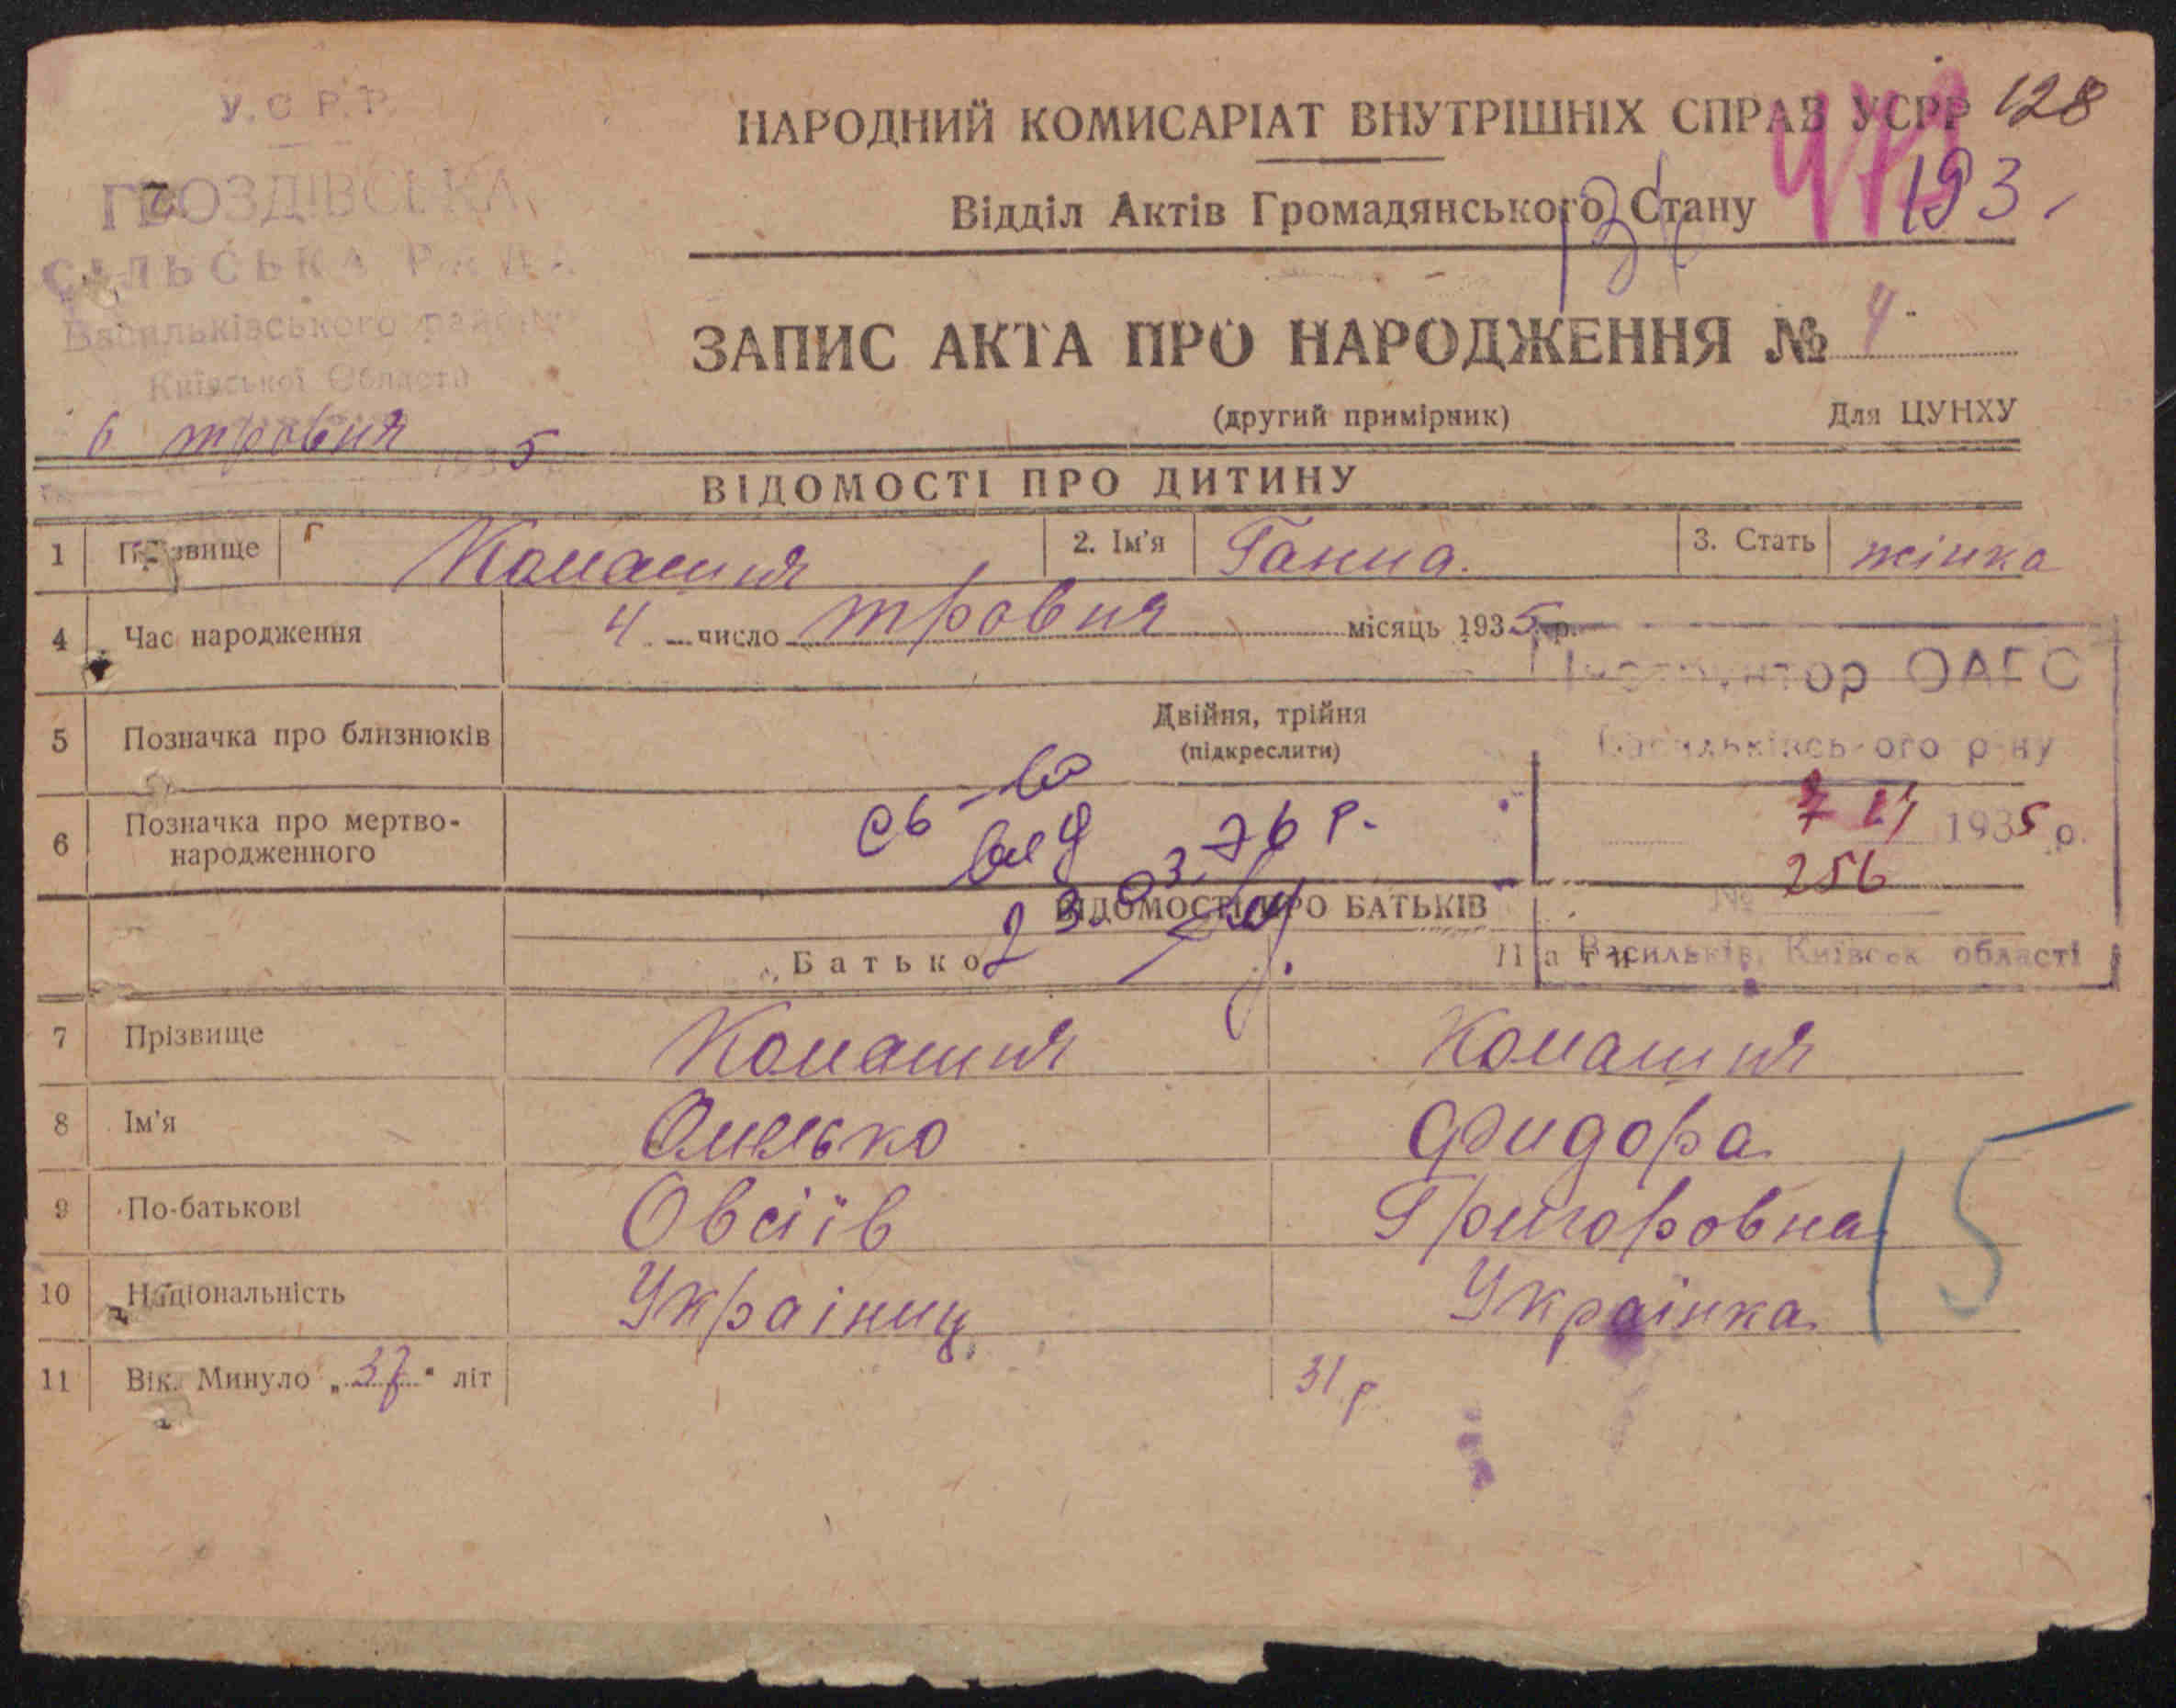 У.С.Р.Р.
ГВОЗДІВСЬКА
СІЛЬСЬКА РАДА
Васильківського району
Київської Области
6 травня 1935
НАРОДНИЙ КОМИСАРІАТ ВНУТРІШНІХ СПРАВ УСРР
128
Відділ Актів Громадянського Стану
193
ЗАПИС АКТА ПРО НАРОДЖЕННЯ № 4
(другий примірник) Для ЦУНХУ
ВІДОМОСТІ ПРО ДИТИНУ
1 Прізвище Комашня 2. Ім'я Ганна. 3. Стать жінка
4 Час народження 4 число травня місяць 1935 р.
Інструктор ОАГС
Васильківського р-ну
5 Позначка про близнюків Двійня, трійня
(підкреслити)
6 Позначка про мертво-
народженного
св-во
выд
23.03.76 р.
1935 р.
№ 256
Васильків, Київськ області
ВІДОМОСТІ ПРО БАТЬКІВ
Батько Мати
7 Прізвище Комашня Комашня
8 Ім'я Омелько Фидора
9 По-батькові Овсіїв Григоровна
10 Національність Україниц Українка
15
11 Вік. Минуло „37“ літ 31 р.